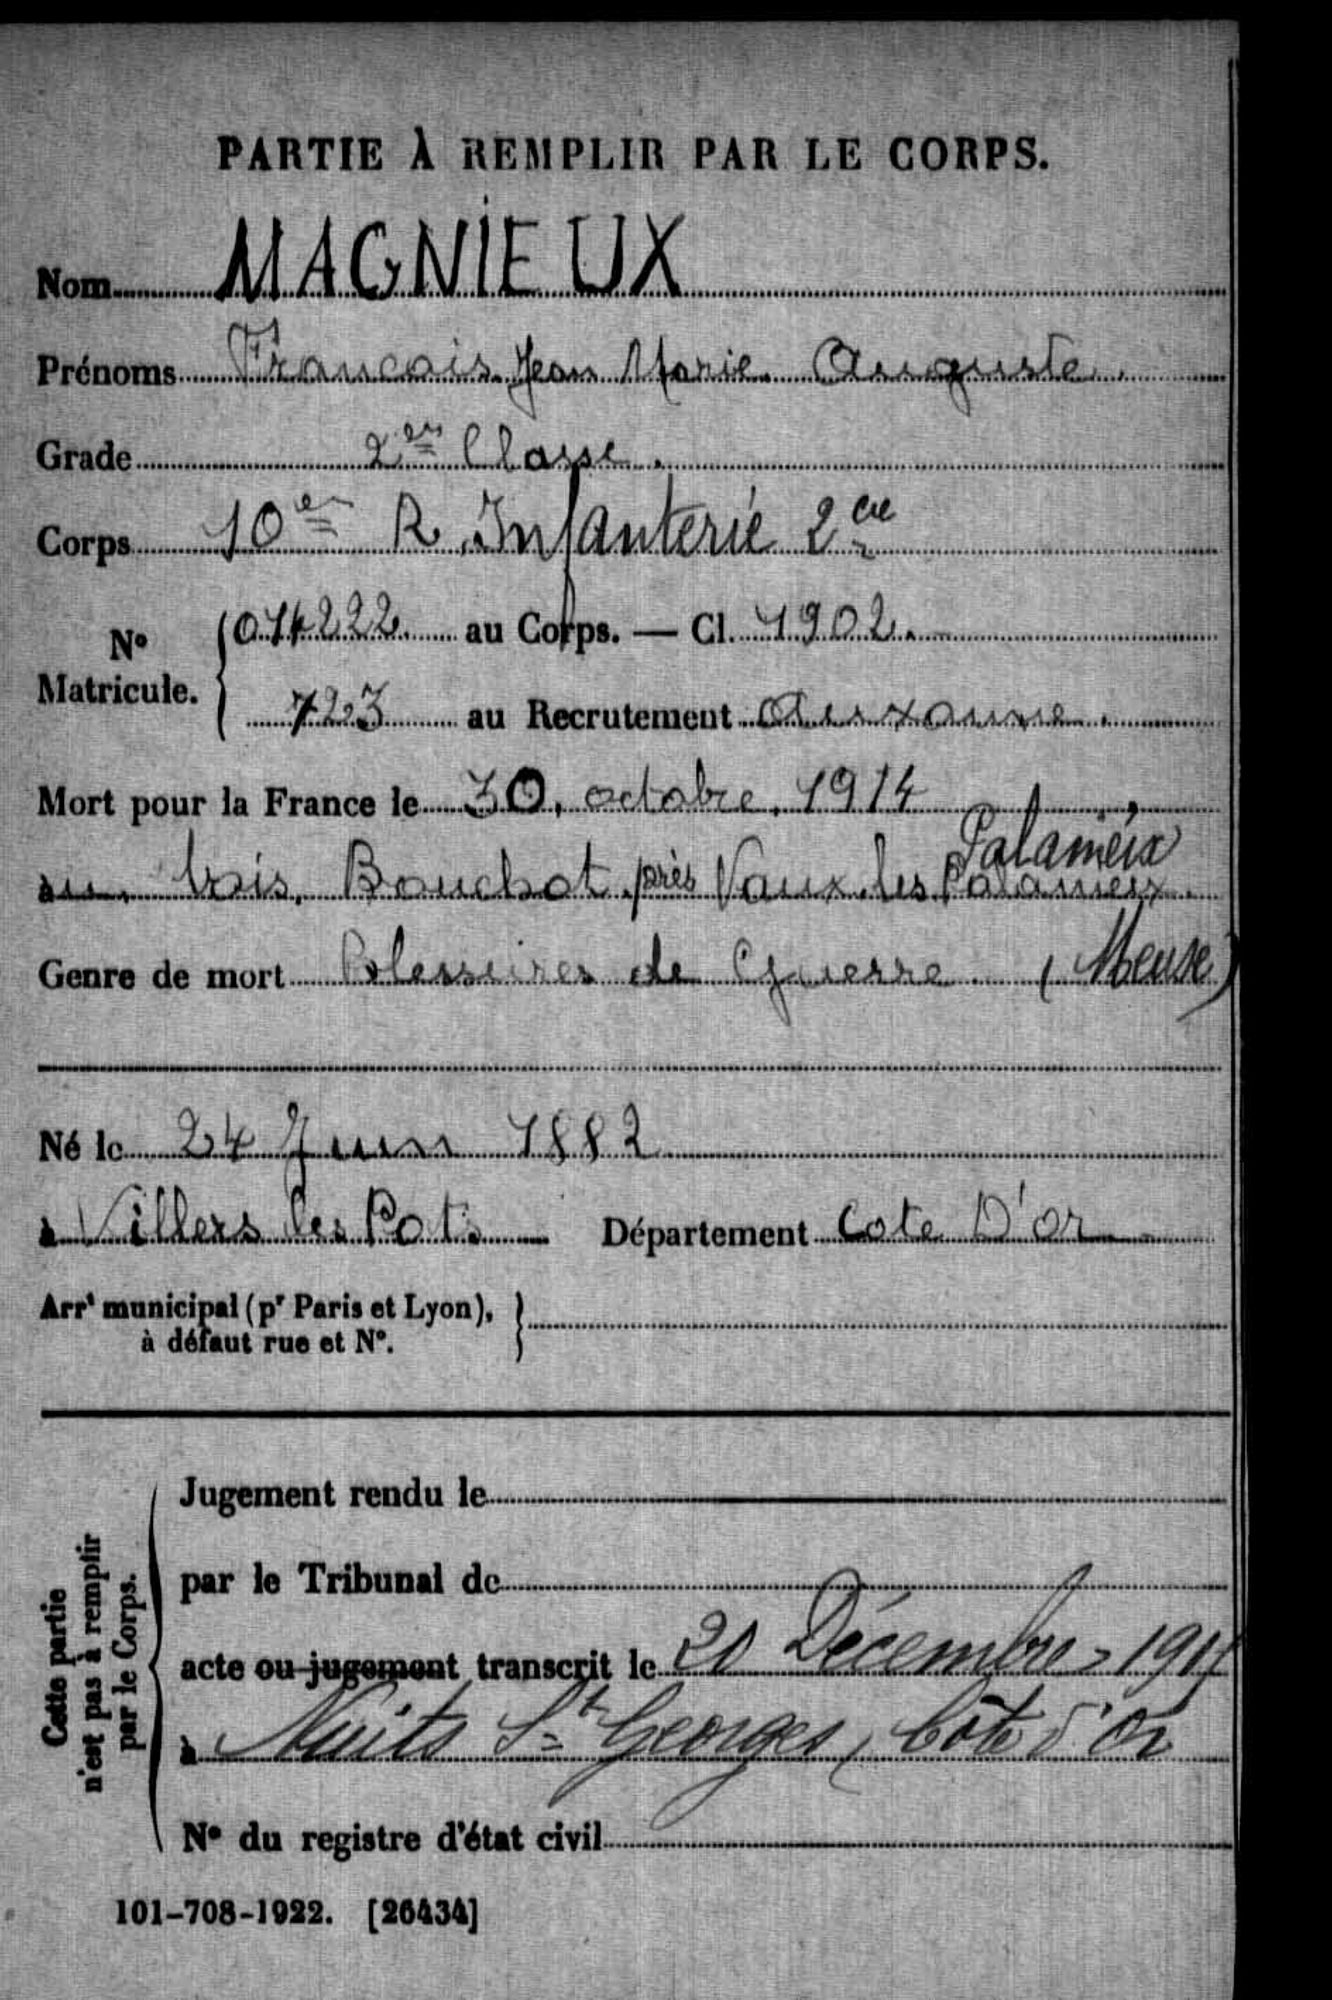 PARTIE À REMPLIR PAR LE CORPS.
Nom MAGNIEUX
Prénoms Francois Jean Marie Auguste.
Grade 2em Classe.
Corps 10e R. Infanterie 2cie
N° Matricule. { 014222. au Corps. — Cl. 1902.
723 au Recrutement Auxonne.
Mort pour la France le 30, octobre, 1914
Palameix
au bois, Bouchot près Vaux les Palameix.
Genre de mort Blessures de Guerre (Meuse)
Né le 24 Juin 1882
à Villers les Pots Département Cote D'or
Arrt municipal (pr Paris et Lyon),
à défaut rue et N°.
Cette partie
n'est pas à remplir
par le Corps.
Jugement rendu le
par le Tribunal de
acte ou jugement transcrit le Décembre
à Nuits St Georges, Côte d'Or
N° du registre d'état civil
101-708-1922. [26434]